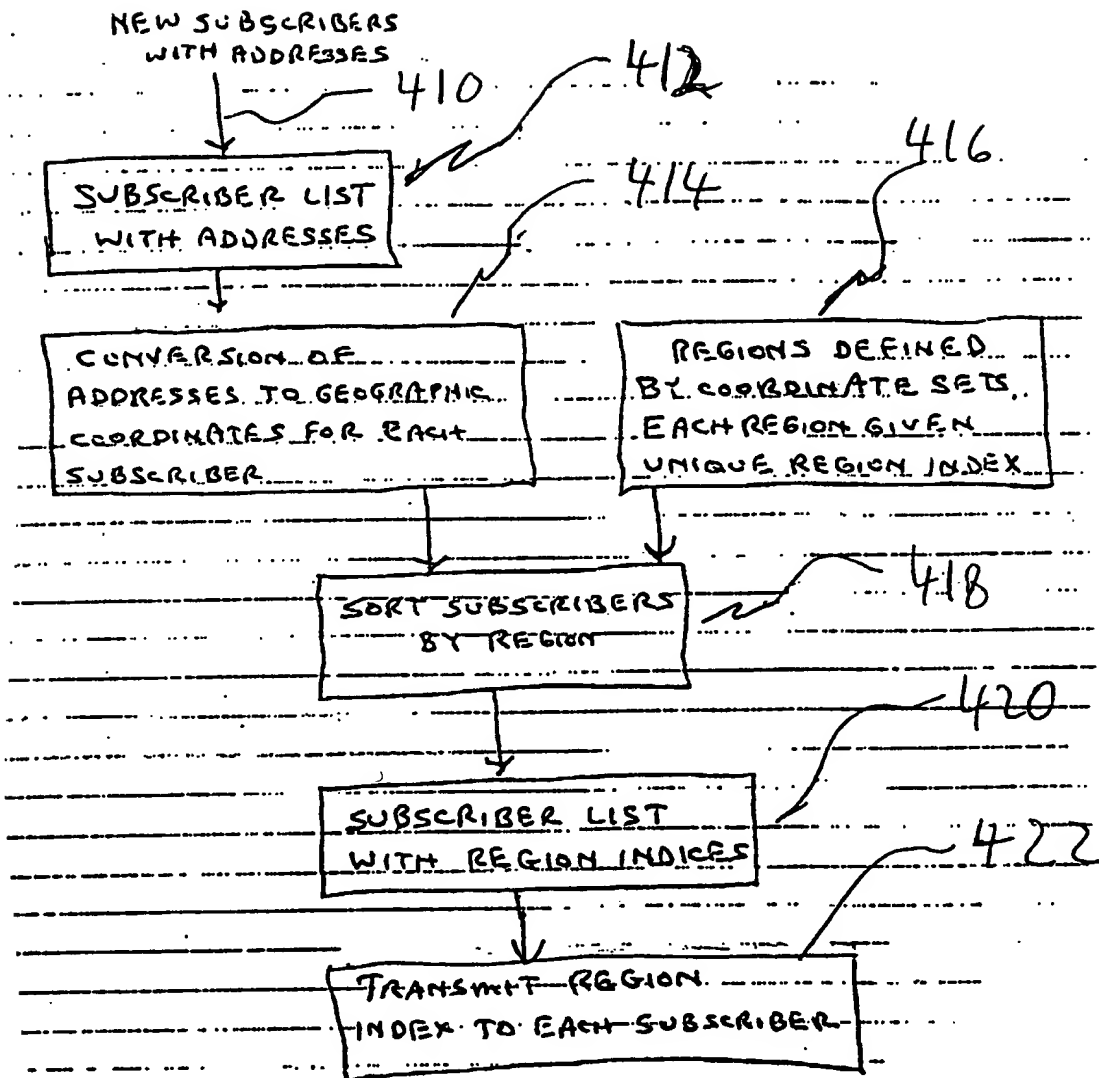 NEW SUBSCRIBERS
WITH ADDRESSES
410
412
SUBSCRIBER LIST
WITH ADDRESSES
414
416
CONVERSION OF
ADDRESSES TO GEOGRAPHIC
COORDINATES FOR EACH
SUBSCRIBER
REGIONS DEFINED
BY COORDINATE SETS.
EACH REGION GIVEN
UNIQUE REGION INDEX
SORT SUBSCRIBERS
BY REGION
418
420
SUBSCRIBER LIST
WITH REGION INDICES
422
TRANSMIT REGION
INDEX TO EACH SUBSCRIBER